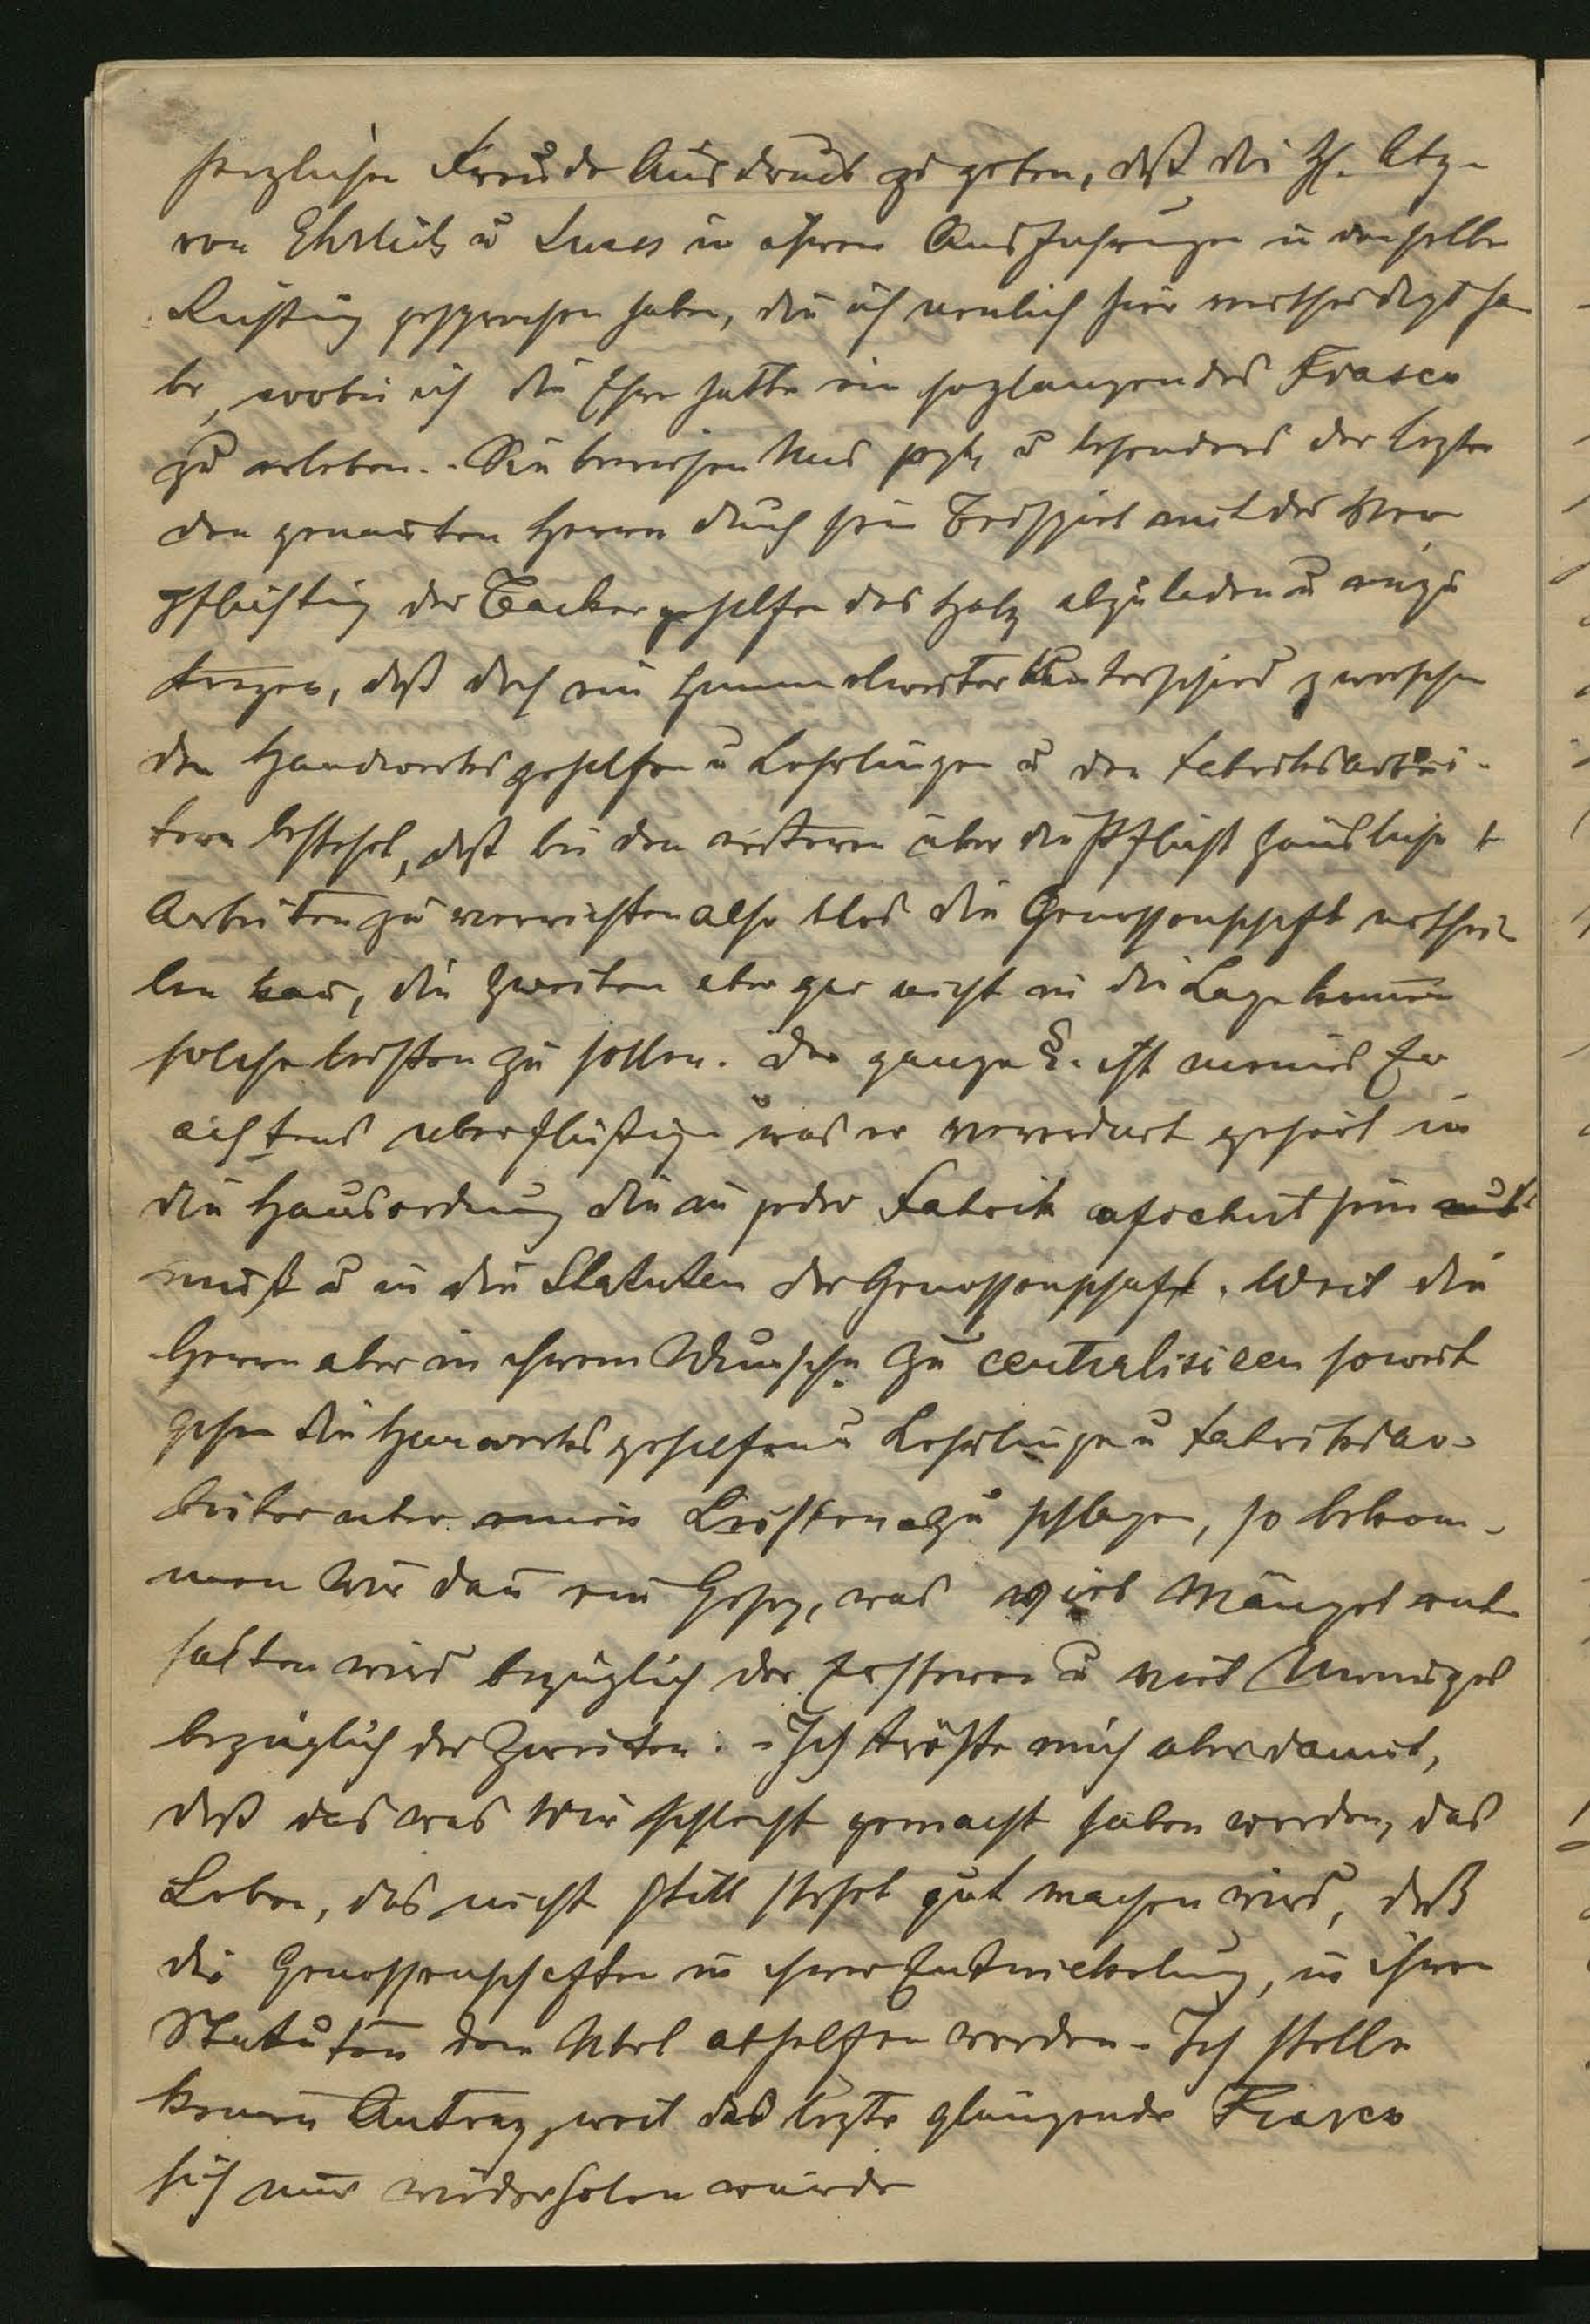 herzlichen Freude Ausdruck zu geben, daß die H. Abg.
von Ehrlich u Suess in ihren Ausfuhrungen in derselben
Richtung gesprochen haben, die ich neulich hier vertheidigt ha
be, wobei ich die Ehre hatte ein hoglanzendes Fiasco
zu erleben. Sie beweisen Uns jezt, u besonders der lezte
den genanten Herren durch sein Beispiel mit der Ver
pflichtung der Backergehilfen das Holz abzuladen u einzu
tragen, daß doch ein himmelweiter Unterschied zwischen
den Handwerksgehilfen u Lehrlingen u den Fabriksarbei-
tern besteht, daß bei den ersteren über die Pflicht häusliche
Arbeiten zu verrichten also blos die Genossenschaft urthei
len kan, die zweiten aber gar nicht in die Lage kommen
solche leisten zu sollen. Der ganze §. ist meines Er
achtens uberflüßig was er verordnet gehört in
die Hausordnung die in jeder Fabrik afichirt sein
muß u in die Statuten der Genossenschaft. Weil die
Herren aber in ihrem Wunsche zu centralisieren soweit
gehen die Hanwerksgehilfen u Lehrlinge u Fabriksar-
beiter uber einen Leisten zu schlagen, so bekom-
men Wir dan ein Gesez, was viel Mängel ent
halten wird bezüglich der Ersteren u viel Mängel
bezüglich der Zweiten. - Ich tröste mich aber damit,
daß das was Wir schlecht gemacht haben werden, das
Leben, das nicht still steht gut machen wird, daß
die Genossenschaften in ihrer Entwickelung, in ihren
Statuten dem Übel abhelfen werden. Ich stelle
keinen Antrag, weil das lezte glänzende Fiasco
sich nur wiederholen würde